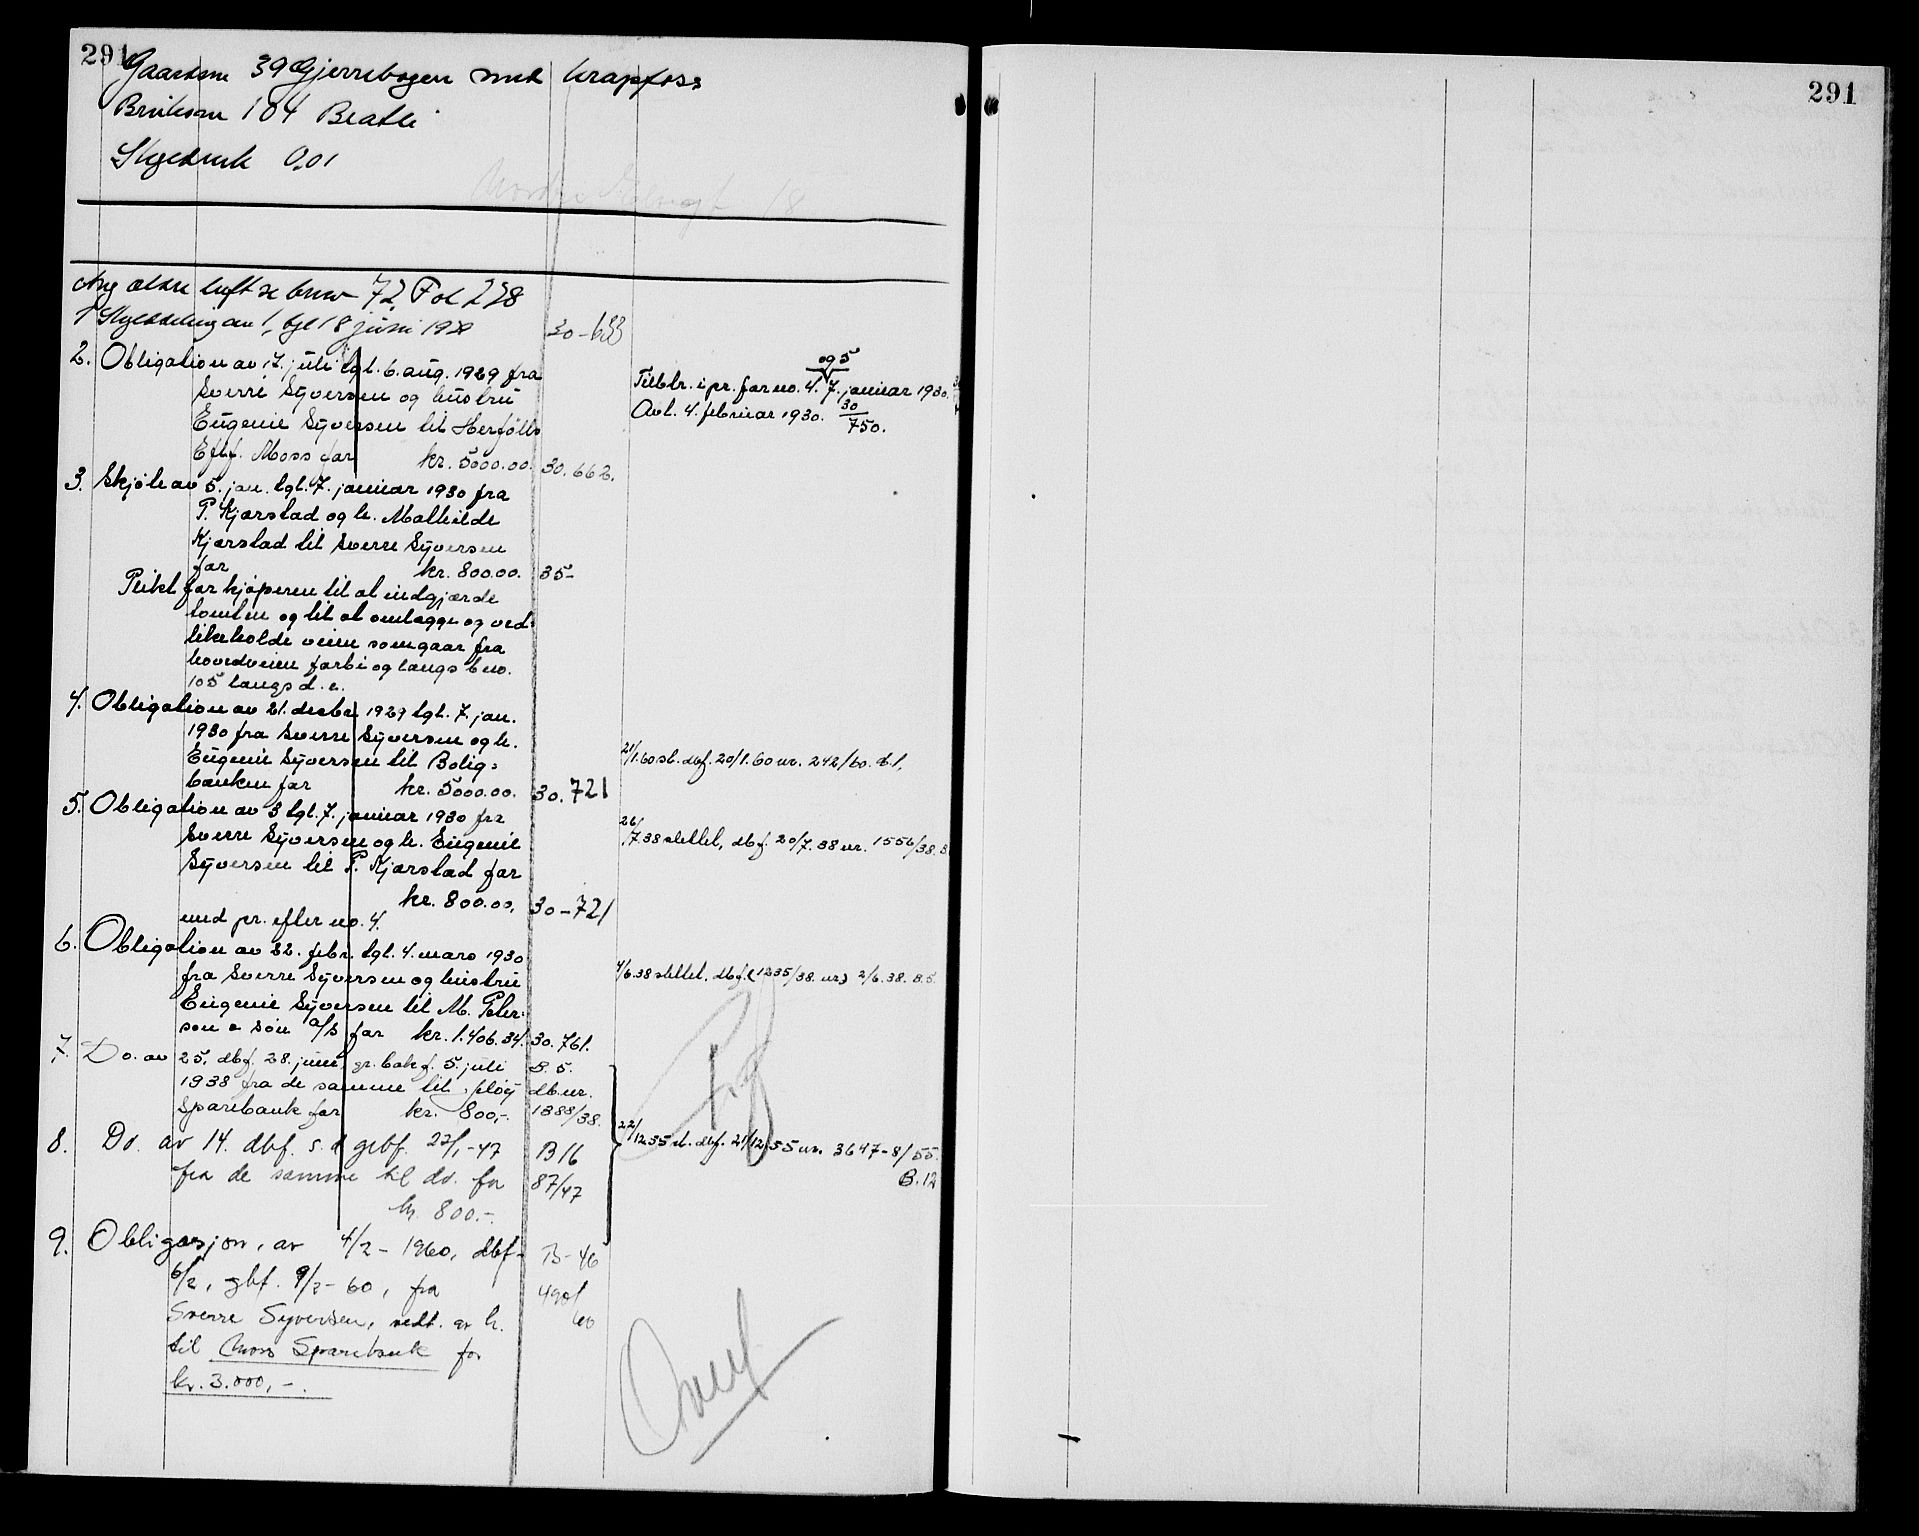 291
Gaardsnr 39 Gjerrebogen med Krapfoss
Bruksnr 104 Bratli
Skyldmrk 0,01
Ang ældre heft se bnr 72 Fol 228
1 Skylddeling av 1, tgl 18 juni 1929 30-633
2. Obligation av 17. juli tgl. 6. aug. 1929 fra
Sverre Syversen og hustru
Eugenie Syversen til Herføll
Eftf. Moss for kr. 5000.00. 30.662.
og 5
Tilbtr. i pr. for no. 4. 7. januar 1930.
Avl. 4. februar 1930. 30/750.
3. Skjøte av 5. jan. tgl. 7. januar 1930 fra
P. Kjærstad og h. Mathilde
Kjærstad til Sverre Syversen
for kr. 800.00. 35-
Plikt for kjøperen til at indgjærde
tomten og til at omlægge og ved-
likeholde veien som gaar fra
hovedveien forbi og langs bno.
105 langs d. e.
4. Obligation av 21. decbr. 1929 tgl. 7. jan.
1930 fra Sverre Syversen og h.
Eugenie Syversen til Bolig-
banken for kr. 5000.00. 30.721
21/1.60 sl. dbf. 20/1.60 nr. 242/60. B.1.
5. Obligation av 3 tgl. 7. januar 1930 fra
Sverre Syversen og h. Eugenie
Syversen til P. Kjærstad for
kr. 800.00, 30-721
med pr. efter no. 4.
26/7.38 slettet, dbf. 20/7.38 nr. 1556/38. B.
6. Obligation av 22. febr. tgl. 4. mars 1930
fra Sverre Syversen og hustru
Eugenie Syversen til M. Peter-
son & Søn A/S for kr. 1.406.34. 30.761.
4/6.38 slettet. dbf. (1235/38. nr) 2/6.38. B.5.
7. Do. av 25. dbf. 28. juni, gr. bok f. 5. juli B. 5.
1938 fra de samme til Fløy dbnr.
Sparebank for kr. 800,-. 1388/38.
8. Do. av 14. dbf. s. d. grbf. 22/1-47 B 16
fra de samme til do. for 87/47
kr. 800.-.
22/12.55 sl. dbf. 21/12.55 nr. 3647-8/55.
B.12
9. Obligasjon, av 4/2-1960, dbf. B-46
6/2, gbf. 9/2-60, fra 490/60
Sverre Syversen, vedt. av h.
til Moss Sparebank for
kr. 3.000,-.
291